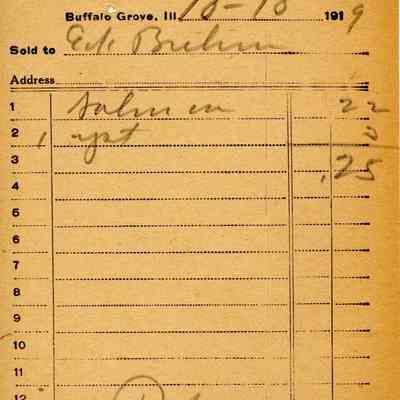 Buffalo Grove, Ill. 10-10 1919
Sold to Ed. Brehm
Address
1 Salmon 22
2 1 yst 3
3 .25
4
5
6
7
8
9
10
11
12